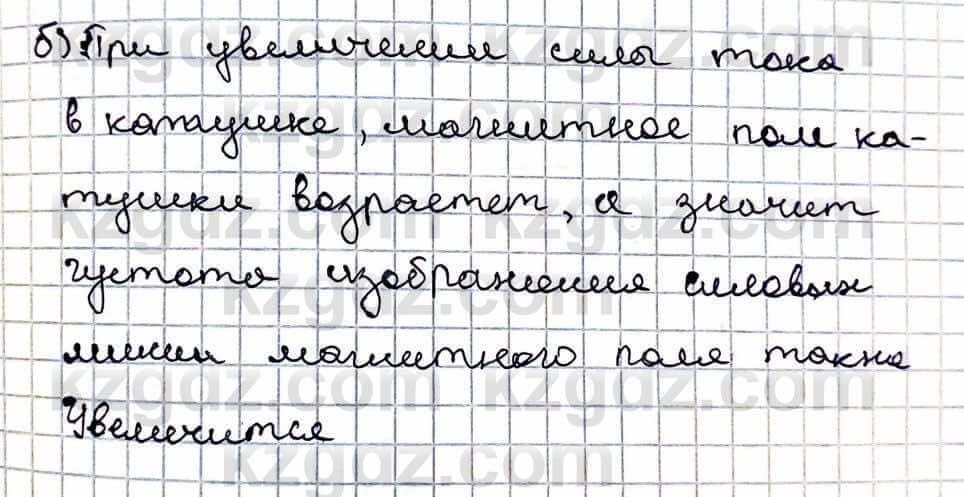 б) При увеличении силы тока
в катушке, магнитное поле ка-
тушки возрастет, а значит
густота изображения силовых
линии магнитного поля также
Увеличится
kzgdz.com